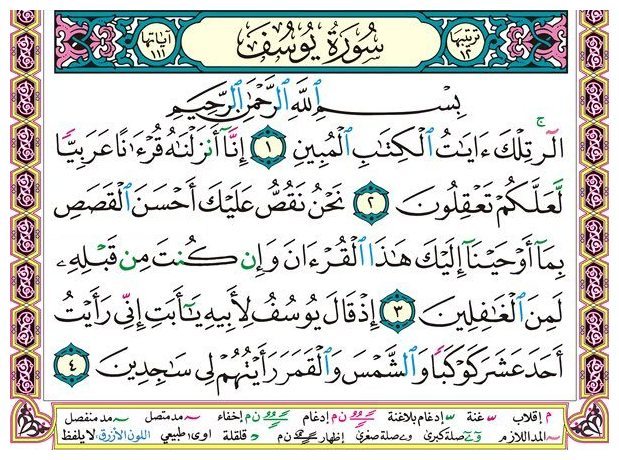 ترتيبها ١٢ سُورَةُ يُوسُفَ آياتها ١١١
بِسْمِ ٱللَّهِ ٱلرَّحْمَٰنِ ٱلرَّحِيمِ
الٓر ۚ تِلْكَ ءَايَٰتُ ٱلْكِتَٰبِ ٱلْمُبِينِ ١ إِنَّآ أَنزَلْنَٰهُ قُرْءَٰنًا عَرَبِيًّا
لَّعَلَّكُمْ تَعْقِلُونَ ٢ نَحْنُ نَقُصُّ عَلَيْكَ أَحْسَنَ ٱلْقَصَصِ
بِمَآ أَوْحَيْنَآ إِلَيْكَ هَٰذَا ٱلْقُرْءَانَ وَإِن كُنتَ مِن قَبْلِهِۦ
لَمِنَ ٱلْغَٰفِلِينَ ٣ إِذْ قَالَ يُوسُفُ لِأَبِيهِ يَٰٓأَبَتِ إِنِّى رَأَيْتُ
أَحَدَ عَشَرَ كَوْكَبًا وَٱلشَّمْسَ وَٱلْقَمَرَ رَأَيْتُهُمْ لِى سَٰجِدِينَ ٤
م إقلاب غنة إدغام بلاغنة ن م إدغام ن م إخفاء مد متصل مد منفصل
المد اللازم صلة كبرى صلة صغرى إظهار ن م قلقلة اوى: طبيعي اللون الأزرق: لا يلفظ